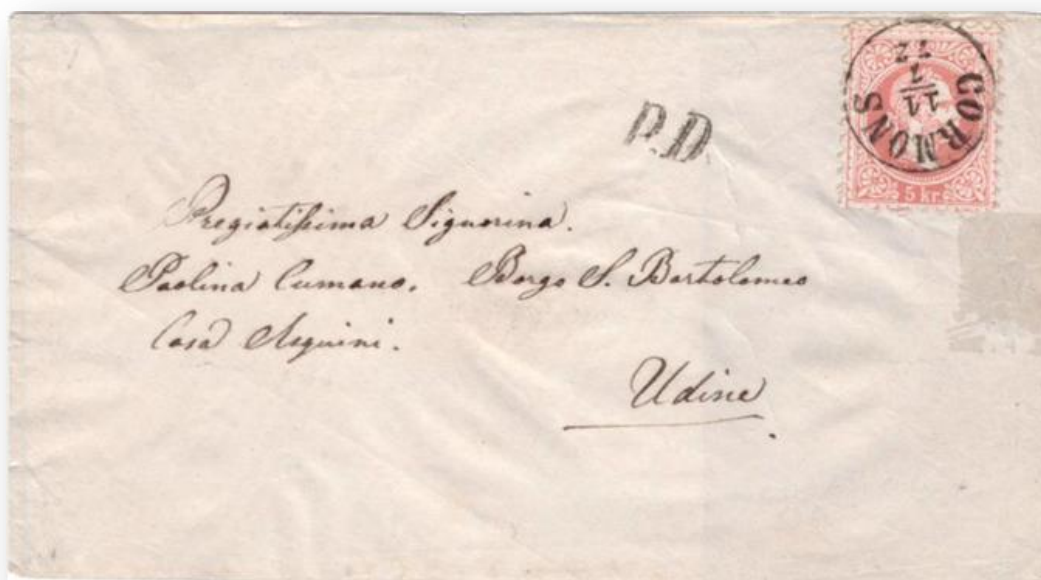 CORMONS
11
7
72
5 kr.
P.D.
Pregiatissima Signorina.
Paolina Cumano. Borgo S. Bartolomeo
Casa Asquini.
Udine